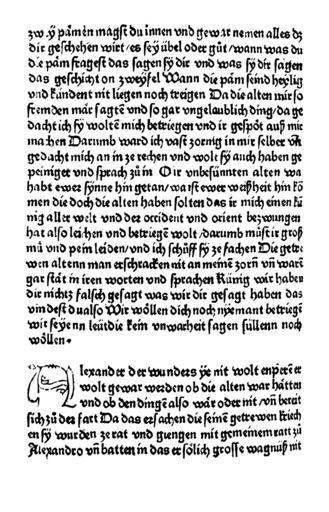 zw·ÿ pâmen magst du innen vnd gewar nemen alles dz
dir geschehen wirt/es seÿ übel oder gůt/wann was du
die pâm fragest das sagen sÿ dir vnd was sÿ dir sagen
das geschicht on zweyfel Wann die pâm seind heylig
vnd kündent nit liegen noch triegen Da die alten mir so
fremden mår sagtē vnd so gar vngelaublich ding/da ge
dacht ich sÿ woltē mich betriegen vnd ir gespöt auß mir
machen Darumb ward ich vast zornig in mir selber vñ
gedacht mich an in ze rechen vnd wolt sÿ auch haben ge
peiniget vnd sprach zů in O ir vnbesünnten alten wa
habt ewer sÿnne hin getan/wa ist ewer weißheit hin kō
men die doch die alten haben solten das ir mich einen kü
nig aller welt vnd der occident vnd orient bezwungen
hat also leichen vnd betriegē wolt/darumb můst ir groß
mů vnd pein leiden/vnd ich schůff sÿ ze fachen Die getre
wen altenn man erschracken nit an meinē zorn vñ warē
gar stät in iren worten vnd sprachen Künig wir haben
dir nichtz falsch gesagt was wir dir gesagt haben das
vindest du also Wir wöllen dich noch nÿemant betriegē
wir seÿenn leütdie kein vnwarheit sagen süllenn noch
wöllen·
Alexander der wunders ÿe nit wolt enperē er
wolt gewar werden ob die alten war hâtten
vnd ob den dingē also wår oder nit/vñ bereit
sich zů der fart Da das ersachen die seinē getrewen kriech
en sÿ wurden ze rat vnd giengen mit gemeinem ratt zů
Alexandro vñ batten in das er sölich grosse wagnuß nit